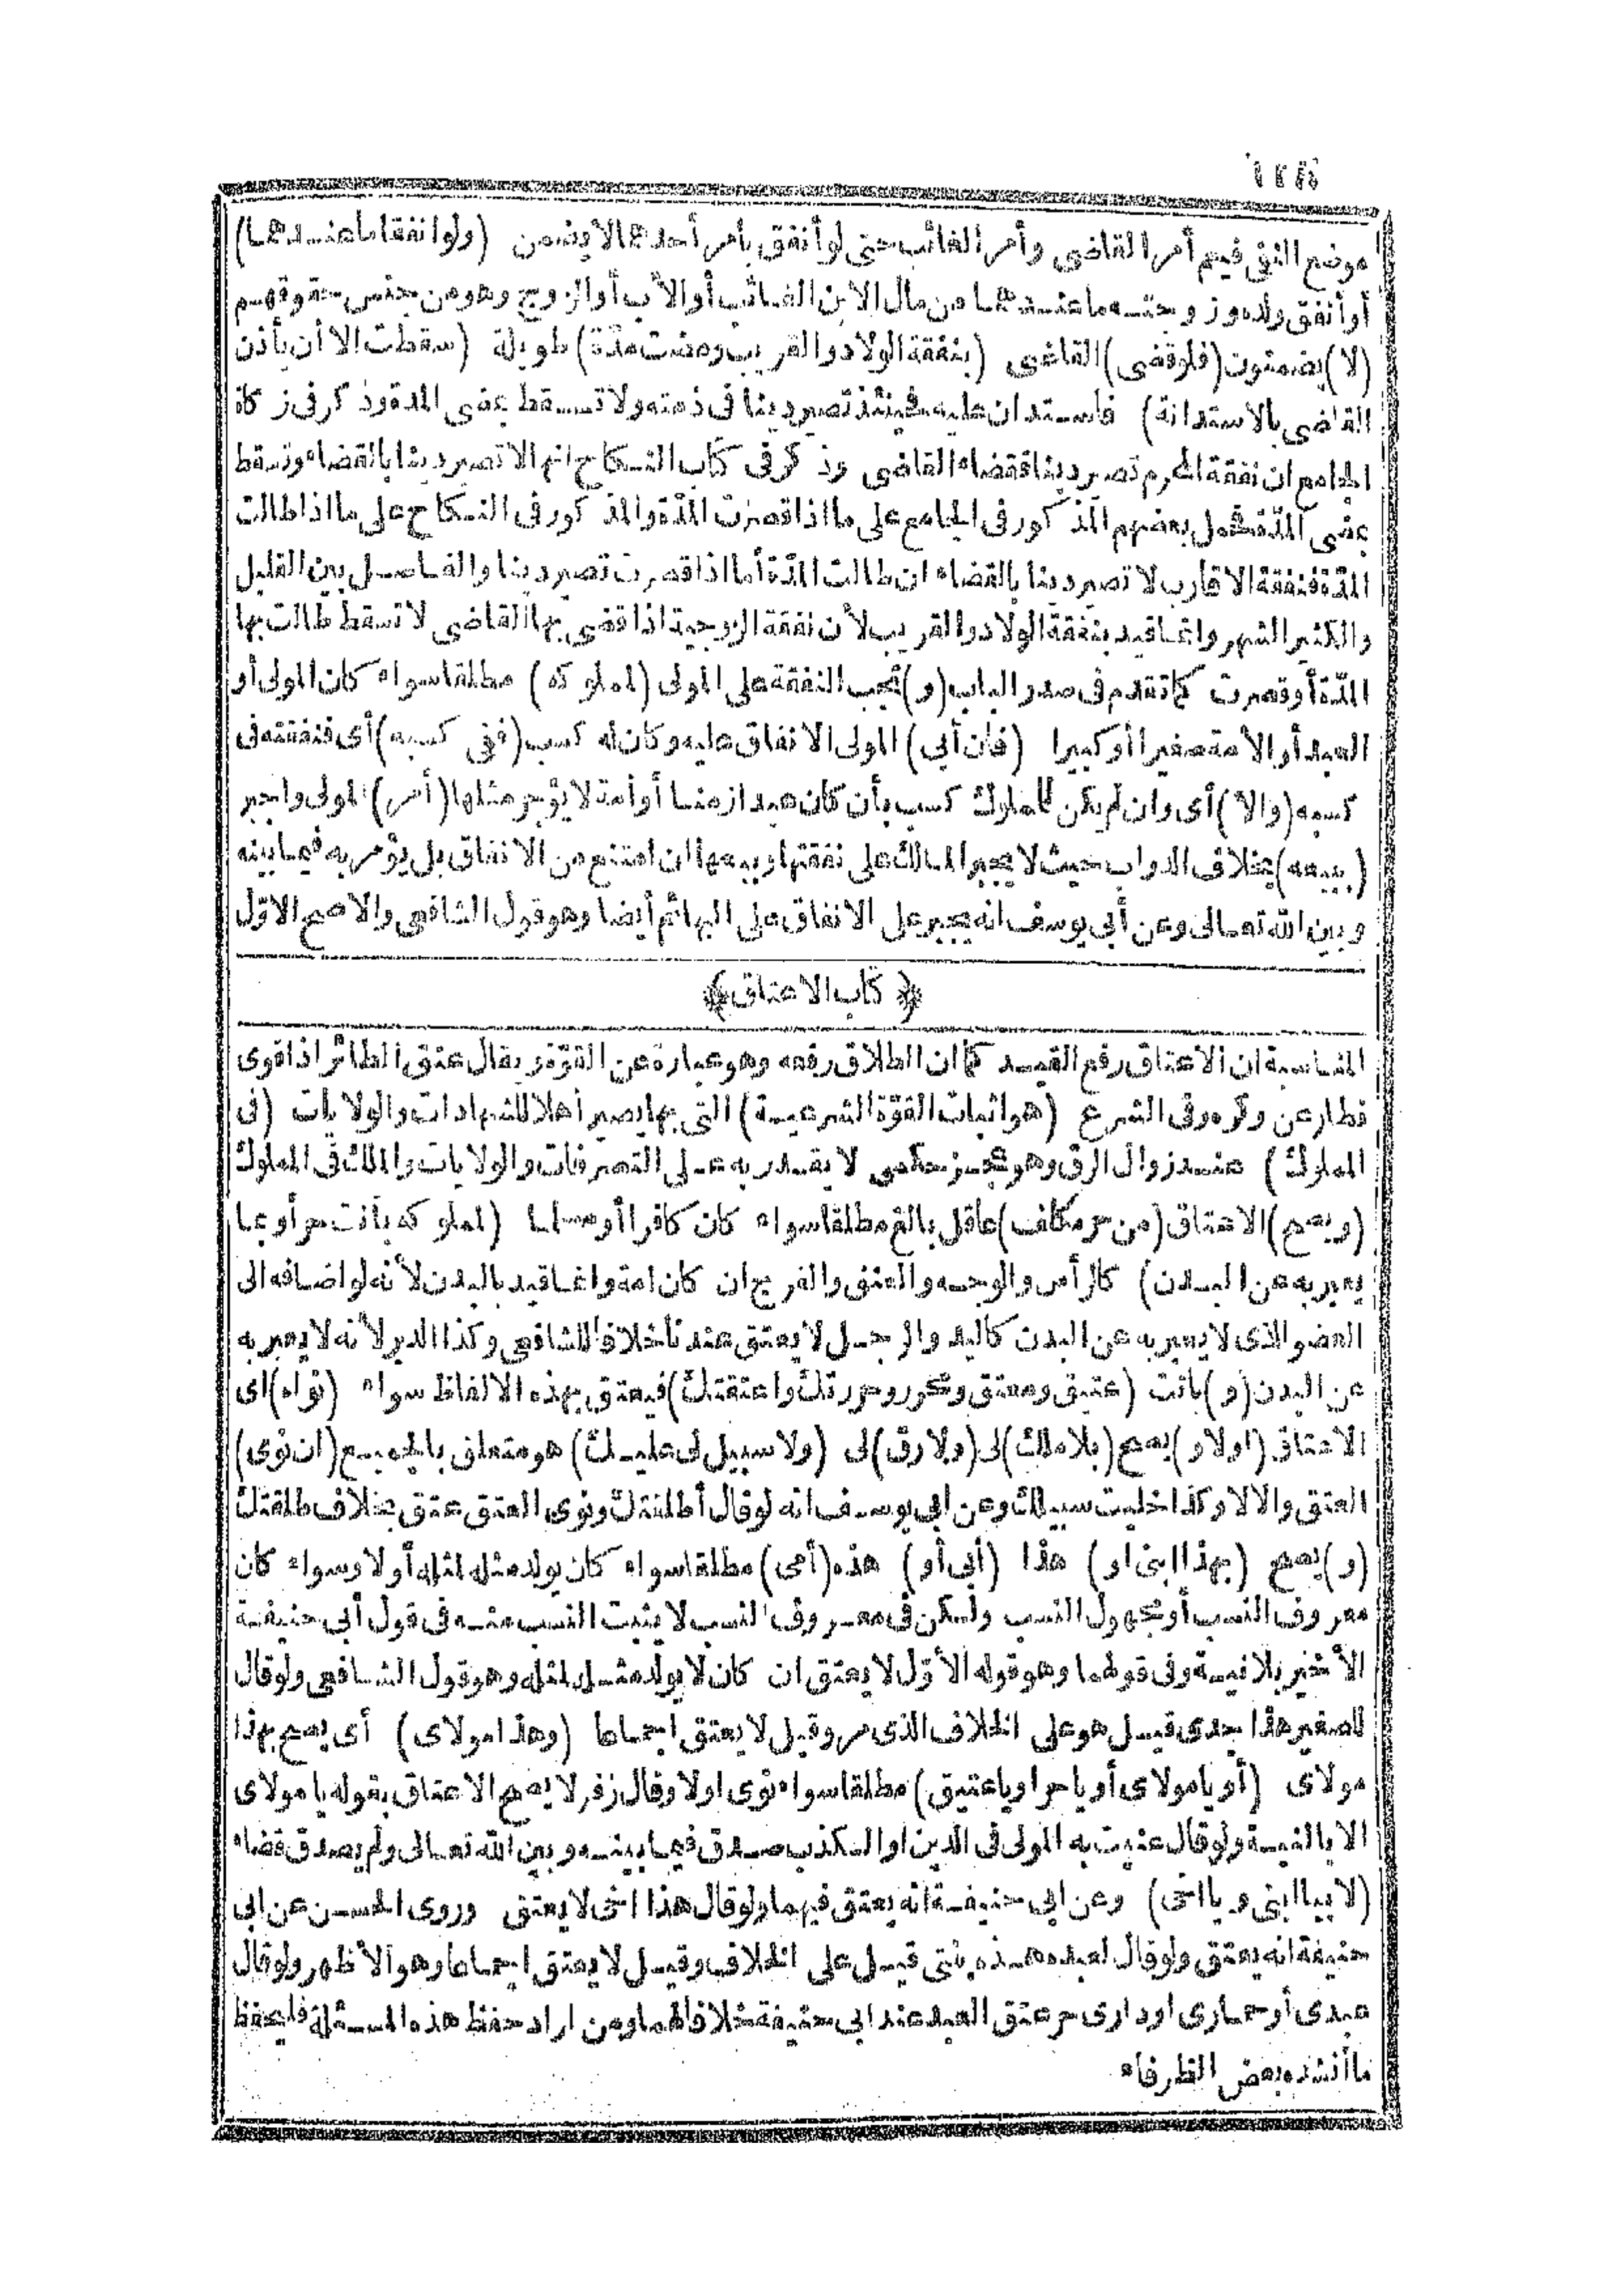 موضع النفى فيهم أمر القاضى وأمر الغائب حتى لو أنفق بأمر أحدهما لا يضمن (ولو انفقا ما عندهما)
أو أنفق ولده وزوجته ما عندهما من مال الابن الغائب أو الأب أو الزوج وهو من جنس حقوقهم
(لا) يضمنون (فلو قضى) القاضى (بنفقة الولاد والقريب ومضت مدّة) طويلة (سقطت الا أن يأذن
القاضى بالاستدانة) فاستدان عليه فحينئذ تصير دينا فى ذمته ولا تسقط بمضى المدة وذكر فى زكاة
الجامع ان نفقة المحرم تصير دينا بقضاء القاضى وذكر فى كتاب النكاح انها لا تصير دينا بالقضاء وتسقط
بمضى المدّة فحمل بعضهم المذكور فى الجامع على ما اذا قصرت المدّة والمذكور فى النكاح على ما اذا طالت
المدّة فنفقة الاقارب لا تصير دينا بالقضاء ان طالت المدّة أما اذا قصرت تصير دينا والفاصل بين القليل
والكثير الشهر وانما قيد بنفقة الولاد والقريب لأن نفقة الزوجية اذا قضى بها القاضى لا تسقط طالت بها
المدّة أو قصرت كما تقدم فى صدر الباب (و) تجب النفقة على المولى (لمملوكه) مطلقا سواء كان المولى أو
العبد أو الأمة صغيرا أو كبيرا (فان أبى) المولى الانفاق عليه وكان له كسب (ففى كسبه) أى فنفقته فى
كسبه (والا) أى وان لم يكن للمملوك كسب بأن كان عبدا زمنا أو أمة لا يؤجر مثلها (أمر) المولى واجبر
(ببيعه) بخلاف الدواب حيث لا يجبر المالك على نفقتها وبيعها ان امتنع من الانفاق بل يؤمر به فيما بينه
وبين الله تعالى وعن أبى يوسف انه يجبر على الانفاق على البهائم أيضا وهو قول الشافعى والاصح الاوّل
﴿كتاب الاعتاق﴾
المناسبة ان الاعتاق رفع القيد كما ان الطلاق رفعه وهو عبارة عن القوّة يقال عتق الطائر اذا قوى
فطار عن وكره وفى الشرع (هو اثبات القوّة الشرعية) التى بها يصير أهلا للشهادات والولايات (فى
المملوك) عند زوال الرق وهو عجز حكمى لا يقدر به على التصرفات والولايات والملك فى المملوك
(ويصح) الاعتاق (من حر مكلف) عاقل بالغ مطلقا سواء كان كافرا أو مسلما (لمملوكه بأنت حر أو بما
يعبر به عن البدن) كالرأس والوجه والعنق والفرج ان كان امة وانما قيد بالبدن لأنه لو اضافه الى
العضو الذى لا يعبر به عن البدن كاليد والرجل لا يعتق عندنا خلافا للشافعى وكذا الدبر لأنه لا يعبر به
عن البدن (و) بانت (عتيق ومعتق ومحرر وحررتك واعتقتك) فيعتق بهذه الالفاظ سواء (نواه) اى
الاعتاق (اولا و) يصح (بلا ملك) لى (ولا رق) لى (ولا سبيل لى عليك) هو متعلق بالجميع (ان نوى)
العتق والا لا وكذا خليت سبيلك وعن ابى يوسف انه لو قال أطلقتك ونوى العتق عتق بخلاف طلقتك
(و) يصح (بهذا ابنى او) هذا (أبى أو) هذه (أمى) مطلقا سواء كان يولد مثله لمثله أو لا وسواء كان
معروف النسب أو مجهول النسب ولكن فى معروف النسب لا يثبت النسب منه فى قول أبى حنيفة
الأخير بلا نية وفى قولهما وهو قوله الأوّل لا يعتق ان كان لا يولد مثله لمثله وهو قول الشافعى ولو قال
للصغير هذا جدى قيل هو على الخلاف الذى مر وقيل لا يعتق اجماعا (وهذا مولاى) أى يصح بهذا
مولاى (أو يا مولاى أو يا حر او يا عتيق) مطلقا سواء نوى اولا وقال زفر لا يصح الاعتاق بقوله يا مولاى
الا بالنية ولو قال عنيت به المولى فى الدين او الكذب صدق فيما بينه وبين الله تعالى ولم يصدق قضاء
(لا بيا ابنى ويا اخى) وعن ابى حنيفة انه يعتق فيهما ولو قال هذا اخى لا يعتق وروى الحسن عن ابى
حنيفة انه يعتق ولو قال لعبده هذه بنتى قيل على الخلاف وقيل لا يعتق اجماعا وهو الأظهر ولو قال
عبدى أو حمارى او دارى حر عتق العبد عند ابى حنيفة خلافا لهما ومن اراد حفظ هذه المسئلة فليحفظ
ما أنشده بعض الظرفاء